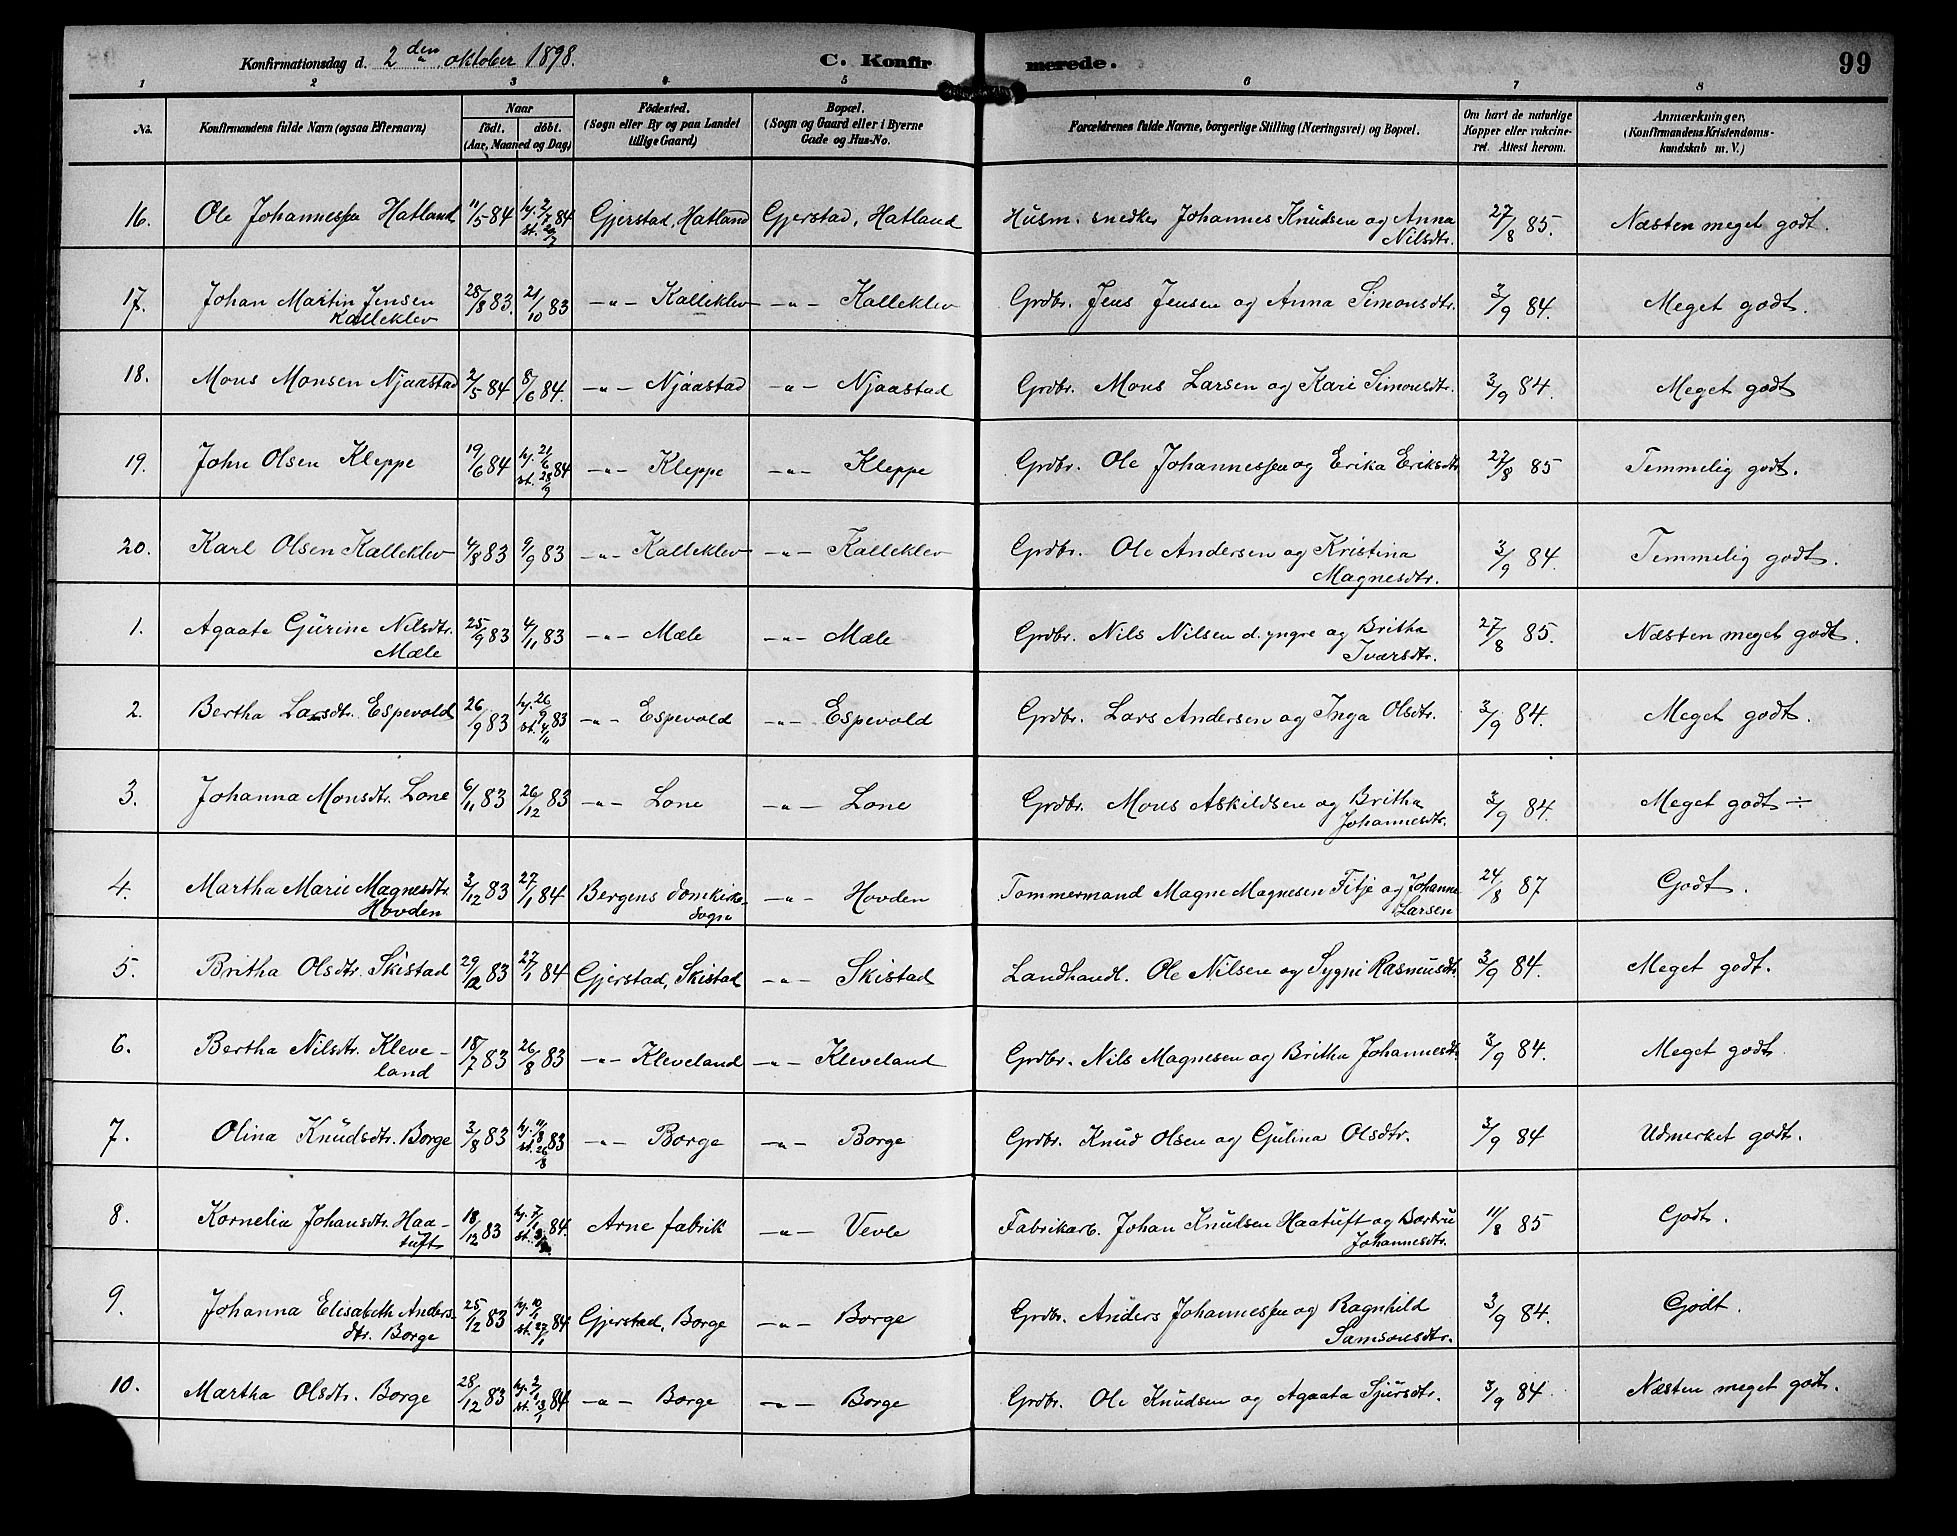 Konfirmationsdag d. 2den oktober 1898. C. Konfirmerede. 99
1 2 3 4 5 6 7 8
No. Konfirmandens fulde Navn (ogsaa Efternavn) Naar födt. döbt. (Aar, Maaned og Dag) Födested. (Sogn eller By og paa Landet tillige Gaard) Bopæl. (Sogn og Gaard eller i Byerne Gade og Hus-No. Forældrenes fulde Navne, borgerlige Stilling (Næringsvei) og Bopæl. Om havt de naturlige Kopper eller vakcineret. Attest herom. Anmærkninger, (Konfirmandens Kristendomskundskab m. V.)
16. Ole Johannessen Hatland 11/5 84 hj. 2/7 84 st. 20/7 Gjerstad, Hatland Gjerstad, Hatland Husm. snedker Johannes Knudsen og Anna Nilsdtr. 27/8 85. Næsten meget godt.
17. Johan Martin Jensen Kalleklev 28/8 83. 21/10 83 -"- Kalleklev -"- Kalleklev Grdbr. Jens Jensen og Anna Simonsdtr. 3/9 84. Meget godt.
18. Mons Monsen Njaastad 2/5 84 8/6 84. -"- Njaastad -"- Njaastad Grdbr. Mons Larsen og Kari Simonsdtr. 3/9 84. Meget godt
19. John Olsen Kleppe 19/6 84 hj. 21/6 84 st. 28/9 -"- Kleppe -"- Kleppe Grdbr. Ole Johannessen og Erika Eriksdtr 27/8 85 Temmelig godt.
20. Karl Olsen Kalleklev 4/8 83 9/9 83 -"- Kalleklev -"- Kalleklev Grdbr. Ole Andersen og Kristina Magnesdtr. 3/9 84. Temmelig godt.
1. Agaate Gurine Nilsdtr. Mæle 25/9 83 4/11 83 -"- Mæle -"- Mæle Grdbr. Nils Nilsen d. yngre og Britha Ivarsdtr. 27/8 85. Næsten meget godt.
2. Bertha Larsdtr. Espevold 26/9 83 hj. 26/9 83 st. 4/11 -"- Espevold -"- Espevold Grdbr. Lars Andersen og Inga Olsdtr. 3/9 84. Meget godt.
3. Johanna Monsdtr. Lone 6/11 83 26/12 83 -"- Lone -"- Lone Grdbr. Mons Askildsen og Britha Johannesdtr. 3/9 84. Meget godt ÷
4. Martha Marie Magnesdtr. Hovden 3/12 83 27/1 84 Bergens domkirkesogn -"- Hovden Tommermand Magne Magnesen Fitje og Johanne Larsen 24/8 87 Godt.
5. Britha Olsdtr. Skistad 29/12 83 27/1 84 Gjerstad, Skistad -"- Skistad Landhandl. Ole Nilsen og Sygni Rasmusdtr. 3/9 84. Meget godt.
6. Bertha Nilsdtr. Kleveland 18/7 83 26/8 83 -"- Kleveland -"- Kleveland Grdbr. Nils Magnesen og Britha Johannesdtr 3/9 84. Meget godt
7. Olina Knudsdtr. Borge 3/8 83 hj. 11/8 83 st. 26/8 -"- Borge -"- Borge Grdbr. Knud Olsen og Gulina Olsdtr. 3/9 84 Udmerket godt.
8. Kornelia Johansdtr. Haatuft 18/12 83 hj. 7/1 84. Arne fabrik -"- Vevle Fabrikarb. Johan Knutsen Haatuft og Bortru Johannesdtr. 11/8 85 Godt.
9. Johanna Elisabeth Andersdtr. Borge 25/12 83 hj. 10/1 84 st. 27/1 Gjerstad, Borge -"- Borge Grdbr. Anders Johannessen og Ragnhild Samsonsdtr. 3/9 84. Godt.
10. Martha Olsdtr. Borge 28/12 83 hj. 2/1 84 st. 13/1 -"- Borge -"- Borge Grdbr. Ole Knudsen og Agaata Sjursdtr. 3/9 84 Næsten meget godt.